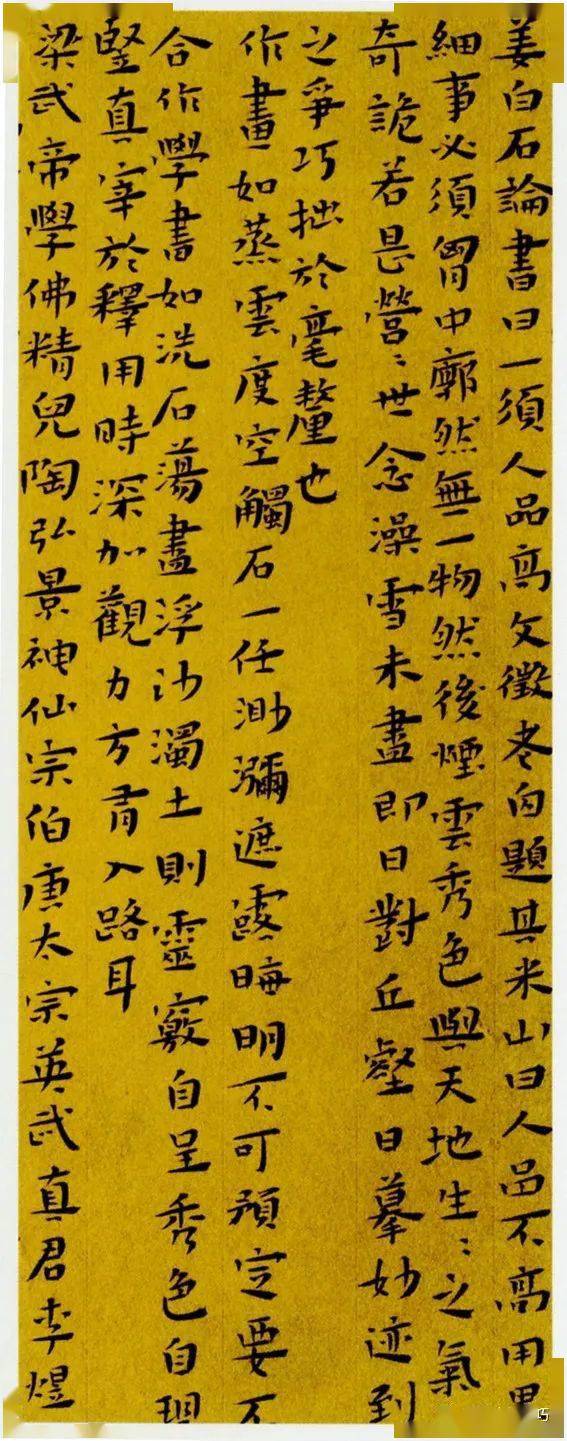 姜白石論書曰一須人品高文徵老自題其米山曰人品不高用
細事必須胷中廓然無一物然後煙雲秀色與天地生〻之氣
奇詭若是營〻世念澡雪未盡即日對丘壑日摹妙迹到
之爭巧拙於毫釐也
作畫如蒸雲度空觸石一任渺瀰遮露晦明不可預定要不
合作學書如洗石蕩盡浮沙濁土則靈竅自呈秀色自現
竪真宰於釋用時深加觀力方有入路耳
梁武帝學佛精兒陶弘景神仙宗伯唐太宗英武真君李煜